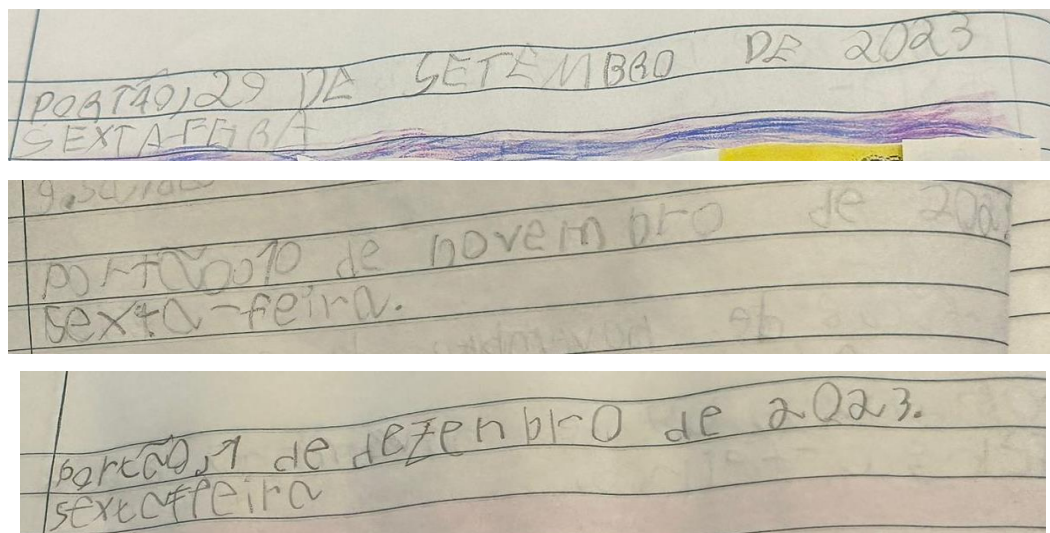 PORTÃO, 29 DE SETEMBRO DE 2023
SEXTA-FEIRA
portão, 10 de novembro de 202
sexta-feira.
portão, 1 de dezenbro de 2023.
sexta-ffeira